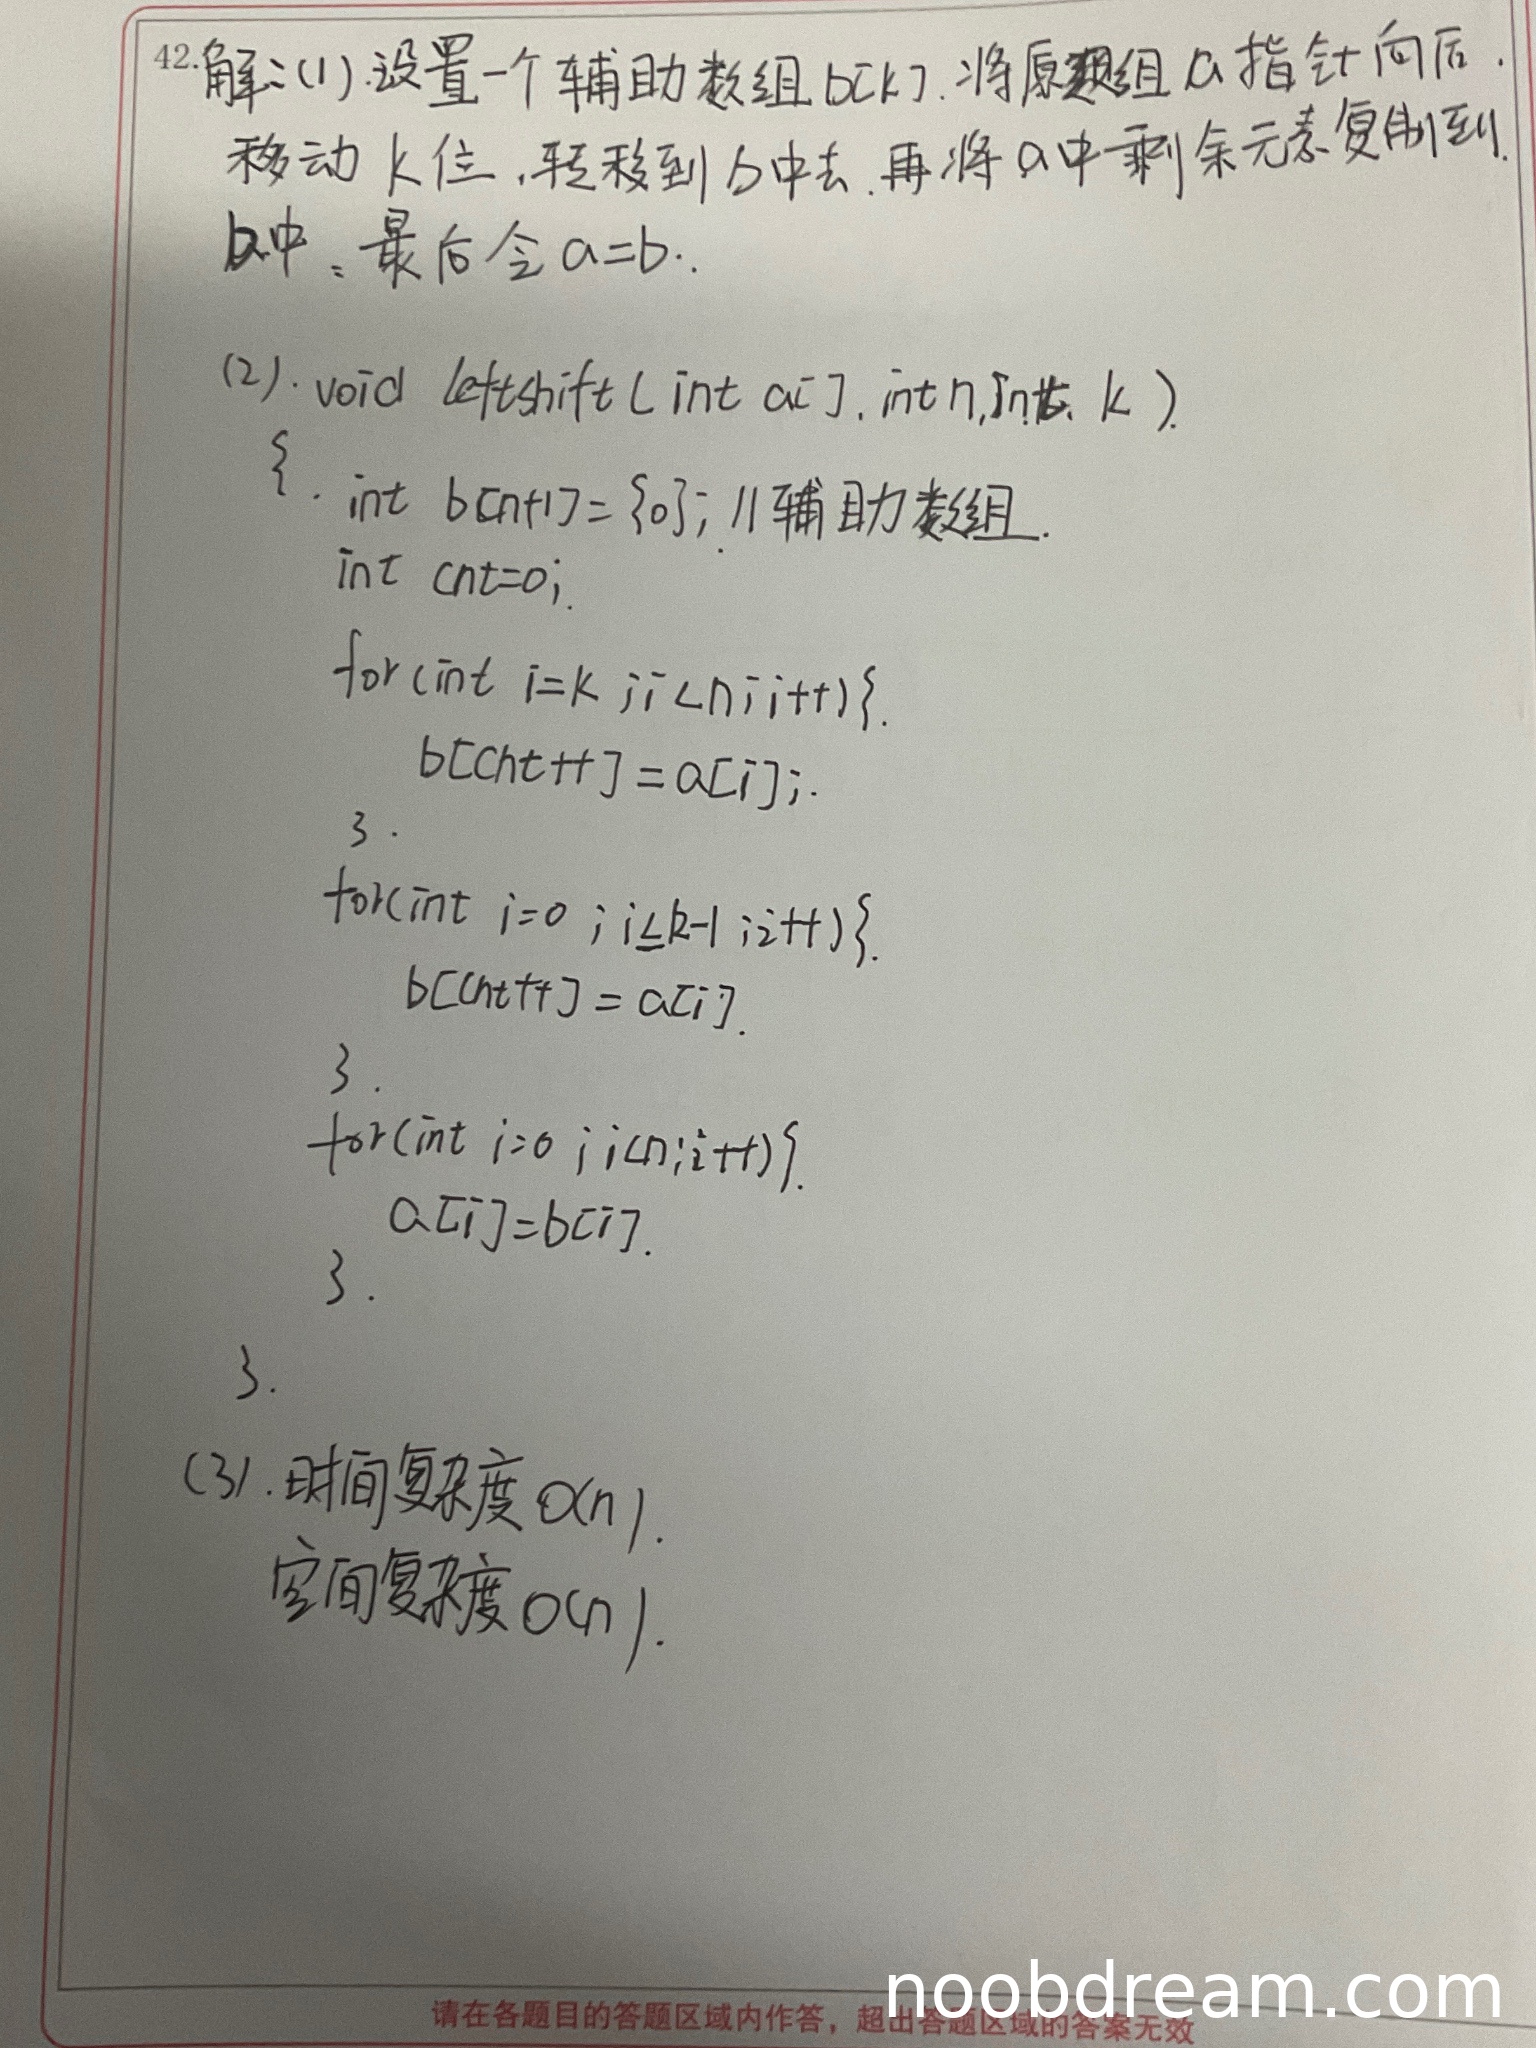 42.解：(1).设置一个辅助数组b[k].将原数组a指针向后.
移动k位,转移到b中去.再将a中剩余元素复制到.
b中.最后令a=b..
(2). void leftshift(int a[], int n, int k).
{.
int b[n+1]={0}; //辅助数组.
int cnt=0;.
for(int i=k ;i<n;i++){.
b[cnt++]=a[i];.
}.
for(int i=0 ;i≤k-1 ;i++){.
b[cnt++]=a[i].
}.
for(int i=0 ;i<n;i++){.
a[i]=b[i].
}.
}.
(3).时间复杂度O(n).
空间复杂度O(n).
noobdream.com
请在各题目的答题区域内作答，超出答题区域的答案无效